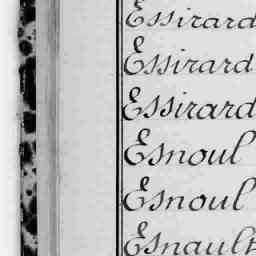 Essirard
Essirard
Essirard
Esnoul
Esnoul
Esnault